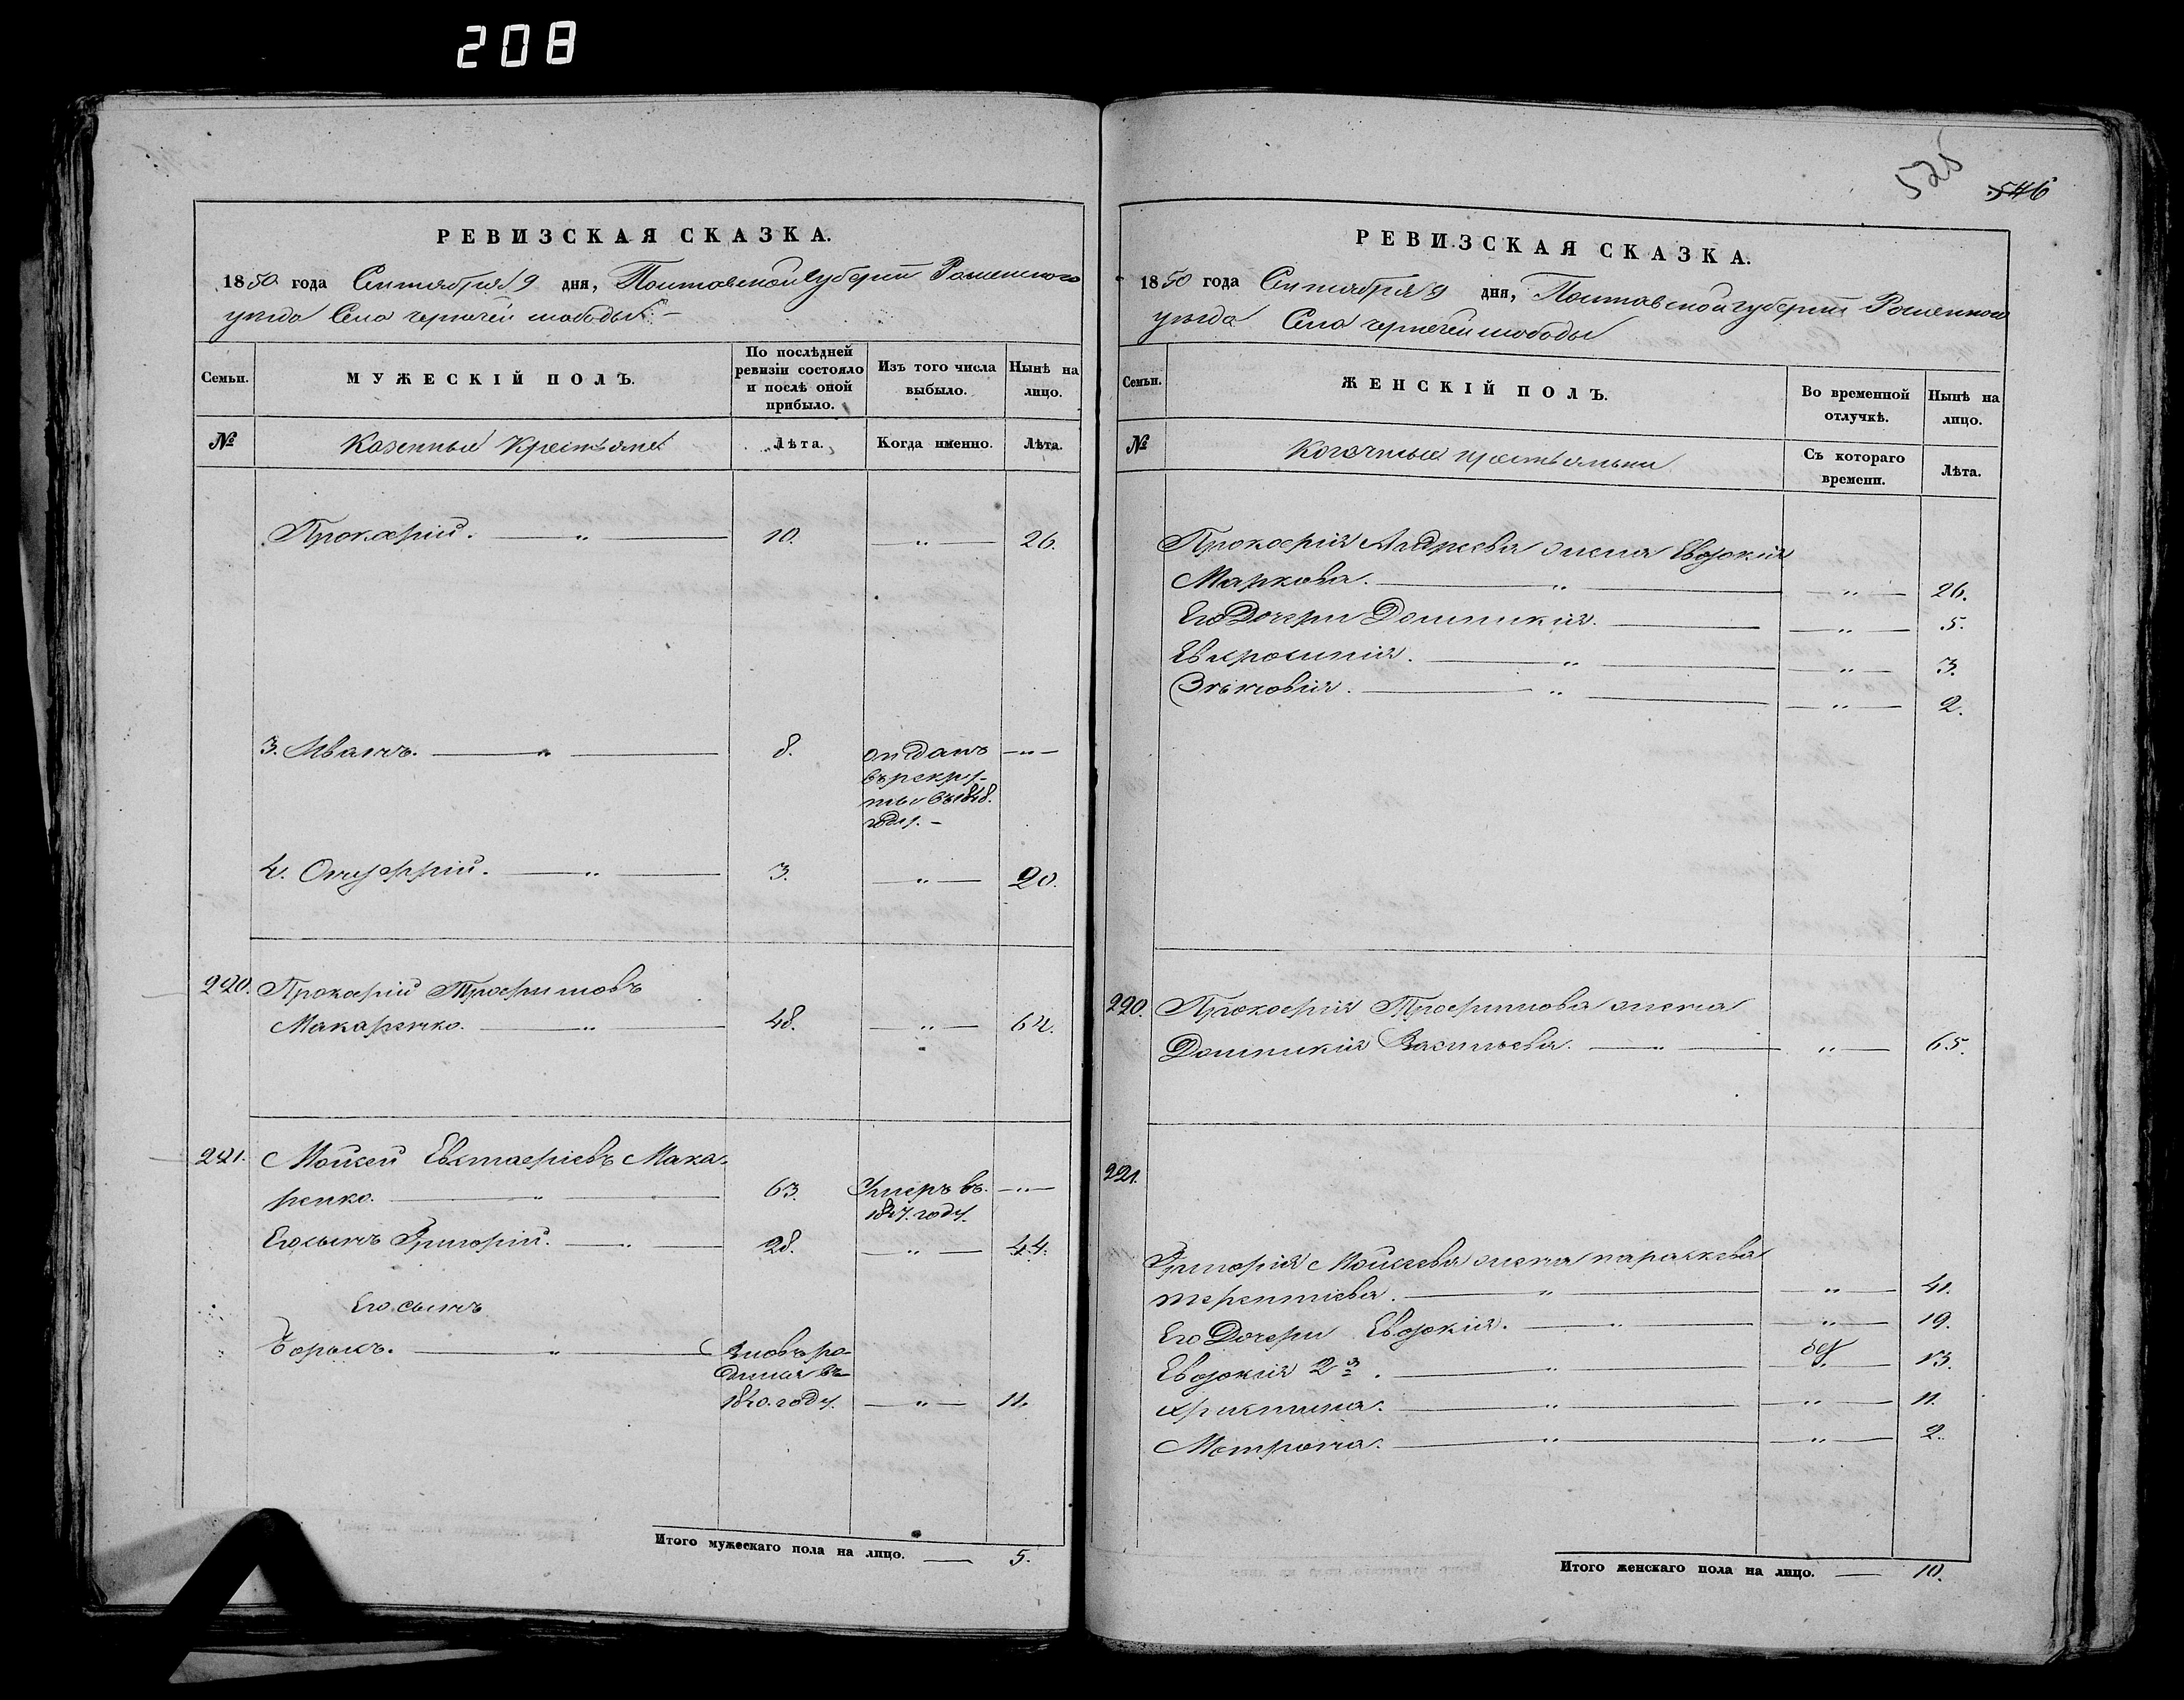 208
РЕВИЗСКАЯ СКАЗКА.
1850 года Сентября 9 дня, Полтавской Губерніи Роменского
уезда Села Чернечей Слободы
Семьи.
МУЖЕСКІЙ ПОЛЪ.
По послѣдней ревизіи состояло и послѣ оной прибыло.
Изъ того числа выбыло.
Нынѣ на лицо.
№
Казенные Крестьяне
Лѣта.
Когда именно.
Лѣта.
Прокофій. — 10. — 26.
3. Иванъ. — 8. отданъ
въ рекру-
ты въ 1848.
году. —
4. Онуфрій. — 3. — 20.
220. Прокофій Трофимовъ
Макаренко. — 48. — 64.
221. Мойсей Евстафіевъ Мака-
ренко. — 63. Умеръ въ
1847. году.
Его сынъ Григорій. — 28. — 44.
Его сынъ
Борисъ. — вновь ро-
дился въ
1840. году. — 11.
Итого мужескаго пола на лицо. — 5.
526
546
РЕВИЗСКАЯ СКАЗКА.
1850 года Сентября 9 дня, Полтавской губерніи Роменского
уезда Села Чернечей слободы
Семьи.
ЖЕНСКІЙ ПОЛЪ.
Во временной отлучкѣ.
Нынѣ на лицо.
№
Казенные крестьянки
Съ котораго времени.
Лѣта.
Прокофія Андреева жена Евдокія
Маркова. — 26.
Его Дочери Домникія. — 5.
Евфросинія. — 3.
Зѣновія. — 2.
220. Прокофія Трофимова жена
Домникія Васильева. — 65.
221.
Григорія Мойсеева жена параскева
терентіева. — 41.
Его Дочери Евдокія. — 19.
Евдокія 2я. — 13.
христина. — 11.
Мотрона. — 2.
Итого женскаго пола на лицо. — 10.